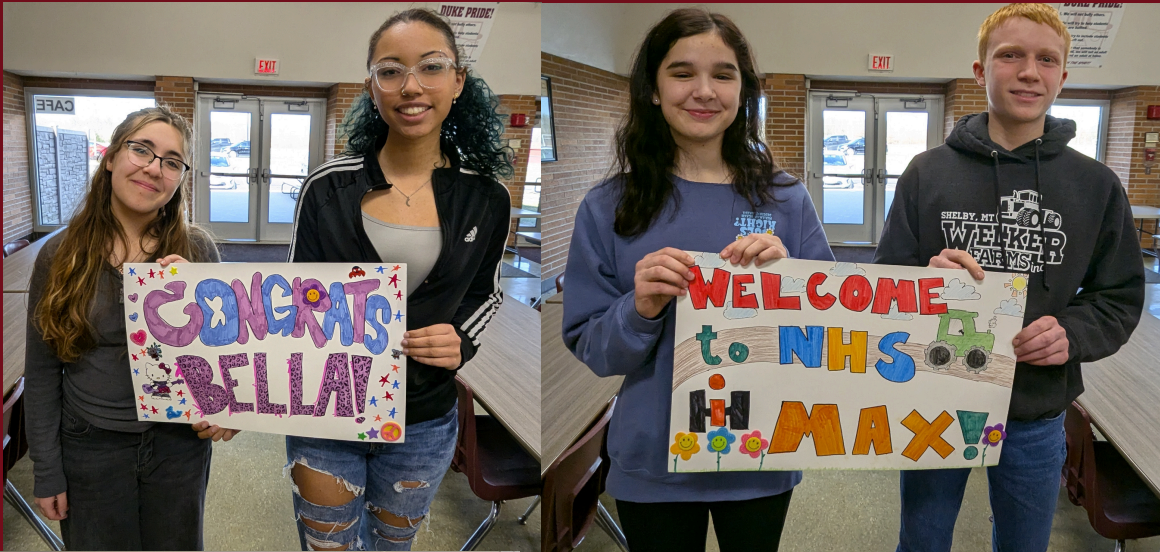 DUKE PRIDE!
EXIT
CAFE
CONGRATS
BELLA!
adidas
DUKE PRIDE!
EXIT
SHELBY, MT
WELKER
FARMS
inc
WELCOME
to NHS
IH
MAX!